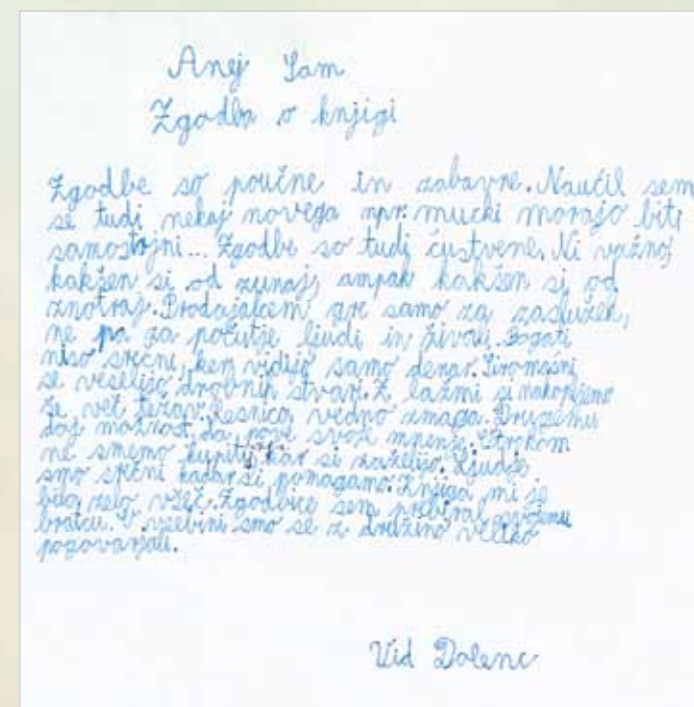 Anej Sam
Zgodba o knjigi
Zgodbe so poučne in zabavne. Naučil sem
se tudi nekaj novega npr. mucki morajo biti
samostojni... Zgodbe so tudi čustvene. Ni važno,
kakšen si od zunaj, ampak kakšen si od
znotraj. Prodajalcem gre samo za zaslužek,
ne pa za počutje ljudi in živali. Bogati
niso srečni, ker vidijo samo denar. Siromašni
se veselijo drobnih stvari. Z lažmi si nakopljemo
še več težav. Resnica vedno zmaga. Drugemu
daj možnost, da pove svoje mnenje. Otrokom
ne smemo kupiti, kar si zaželijo. Ljudje
smo srečni kadar si pomagamo. Knjiga mi je
bila zelo všeč. Zgodbice sem prebiral svojemu
bratcu. O vsebini smo se z družino veliko
pogovarjali.
Vid Dolenc